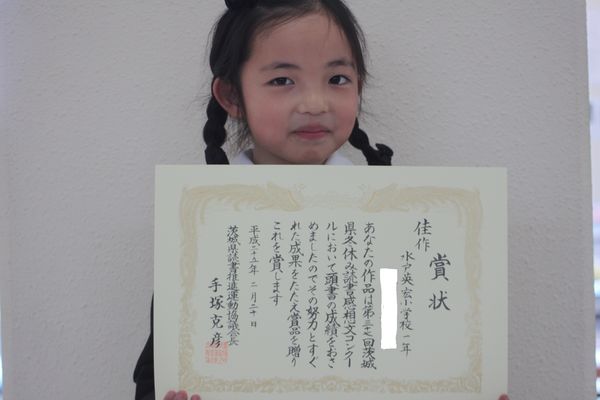 賞状
佳作
水戸英宏小学校一年
あなたの作品は第三七回茨城
県冬休み読書感想文コンクー
ルにおいて頭書の成績をおさ
めましたのでその努力とすぐ
れた成果をたたえ賞品を贈り
これを賞します
平成二十五年二月二十日
茨城県読書推進運動協議会長
手塚克彦